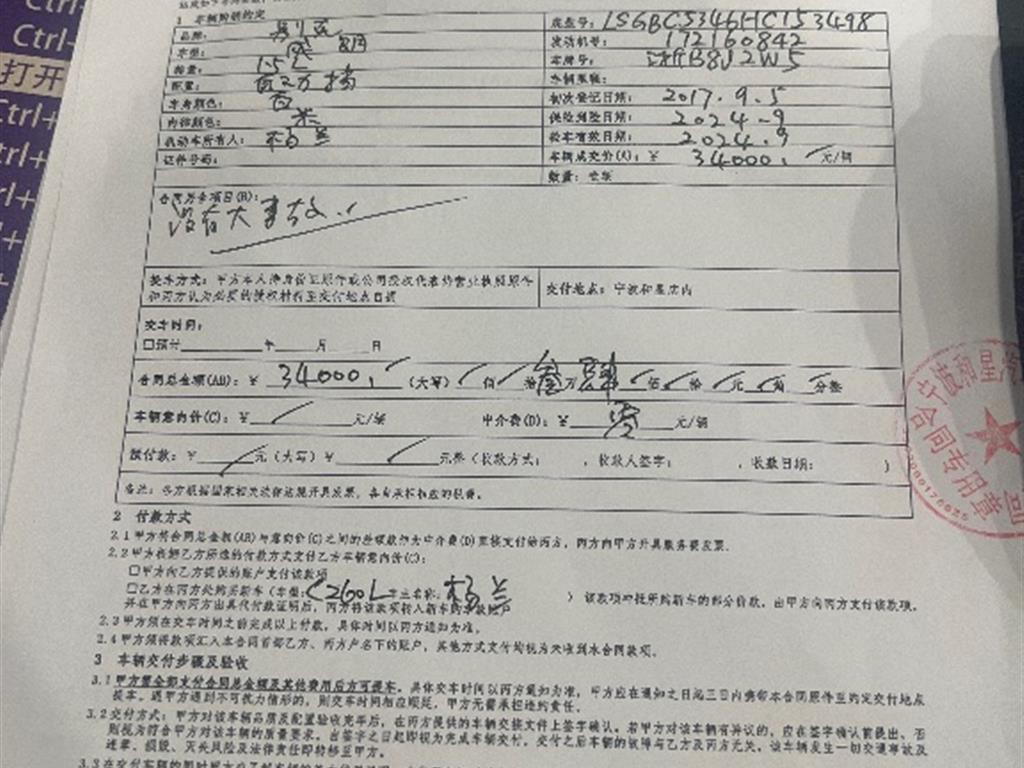 Ctrl+
Ctrl+
打开
1 车辆购销约定
品牌：
底盘号：LSGBC5346HC153498
车型：
发动机号：172160842
排量：1.5L
车牌号：浙B8J2W5
配置：
车辆里程：
车身颜色：白
初次登记日期：2017.9.5
内饰颜色：米
保险到期日期：2024.9
机动车所有人：杨兰
验车有效日期：2024.9
证件号码：
车辆成交价(A)：￥34000. 元/辆
数量：壹辆
合同另参项目(B)：
没有大事故.
提车方式：甲方本人持身份证原件或公司授权代表持营业执照原件
和丙方认为必要的授权材料至交付地点自提
交付地点：宁波和星店内
交车时间：
□预计 年 月 日
合同总金额(AB)：￥34000. (大写) 佰 拾 叁 万 肆 佰 拾 元 角 分整
车辆意向价(C)：￥ 元/辆
中介费(D)：￥ 零 元/辆
预付款：￥ 元 (大写) ￥ 元整 (收款方式： ，收款人签字： ，收款日期： )
备注：各方根据国家相关法律法规开具发票，各自承担相应的税费。
宁波和星汽
合同专用章
2 付款方式
2.1 甲方将合同总金额(AB)与意向价(C)之间的差额款作为中介费(D)直接支付给丙方，丙方向甲方开具服务费发票.
2.2 甲方根据乙方所选的付款方式支付乙方车辆意向价(C)：
□甲方向乙方提供的账户支付该款项
□乙方在丙方处购买新车 (车型：C260L 车主名称：杨兰 ) 该款项冲抵所购新车的部分价款，由甲方向丙方支付该款项。
并在甲方向丙方出具代付款证明后，丙方将该款项转入新车购车款账户
2.3 甲方须在交车时间之前完成以上付款，具体时间以丙方通知为准。
2.4 甲方须将款项汇入本合同首部乙方、丙方户名下的账户，其他方式支付均视为未收到本合同款项。
3 车辆交付步骤及验收
3.1 甲方需全部支付合同总金额及其他费用后方可提车。具体交车时间以丙方通知为准，甲方应在通知之日起三日内携带本合同原件至约定交付地点
提车。遇甲方遇到不可抗力情形的，则交车时间相应顺延，甲方无需承担违约责任。
3.2 交付方式：甲方对该车辆品质及配置验收完毕后，在丙方提供的车辆交接文件上签字确认。若甲方对该车辆有异议的，应在签字确认前提出、否
则视为符合甲方对该车辆的质量要求。出签字之日起即视为完成车辆交付，交付之后车辆的故障与乙方及丙方无关。该车辆发生一切交通事故及
违章、损毁、灭失风险及法律责任即转移至甲方。